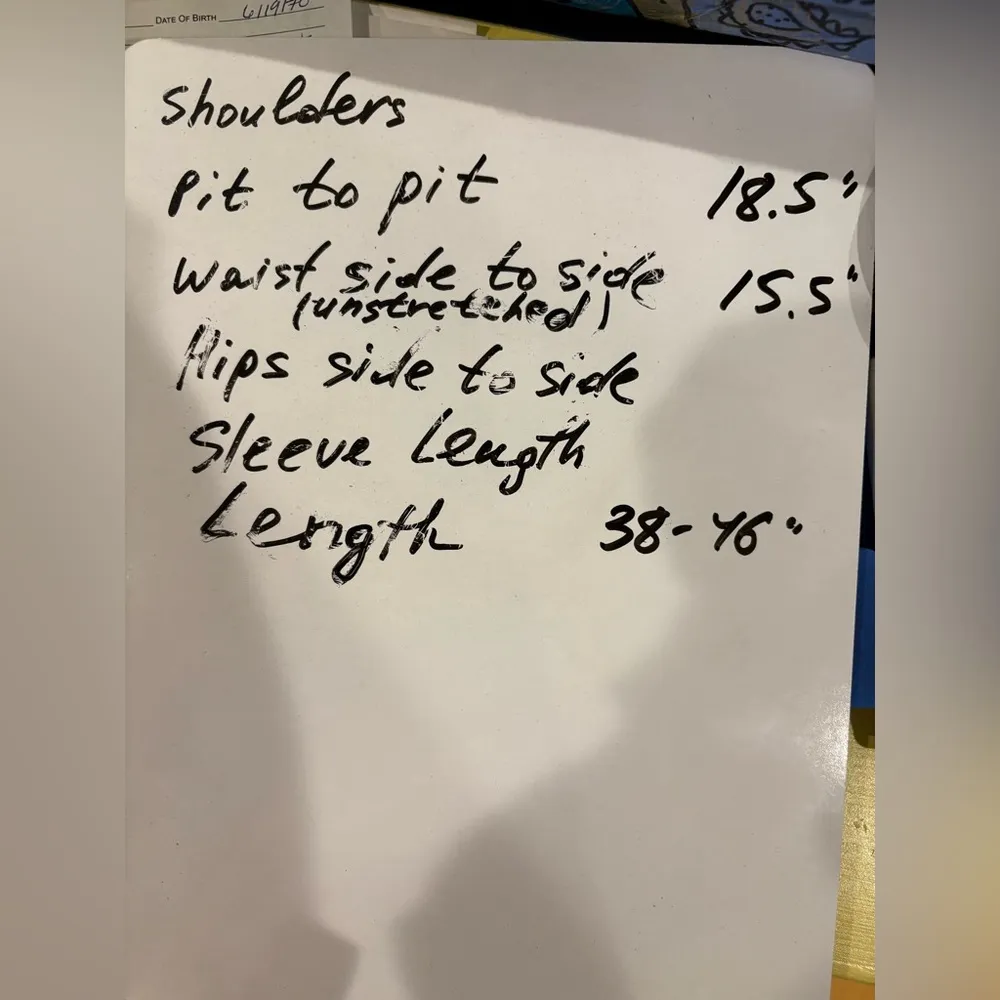 DATE OF BIRTH 6/19/70
Shoulders
Pit to pit 18.5"
Waist side to side 15.5"
(unstretched)
Hips side to side
Sleeve Length
Length 38-46"